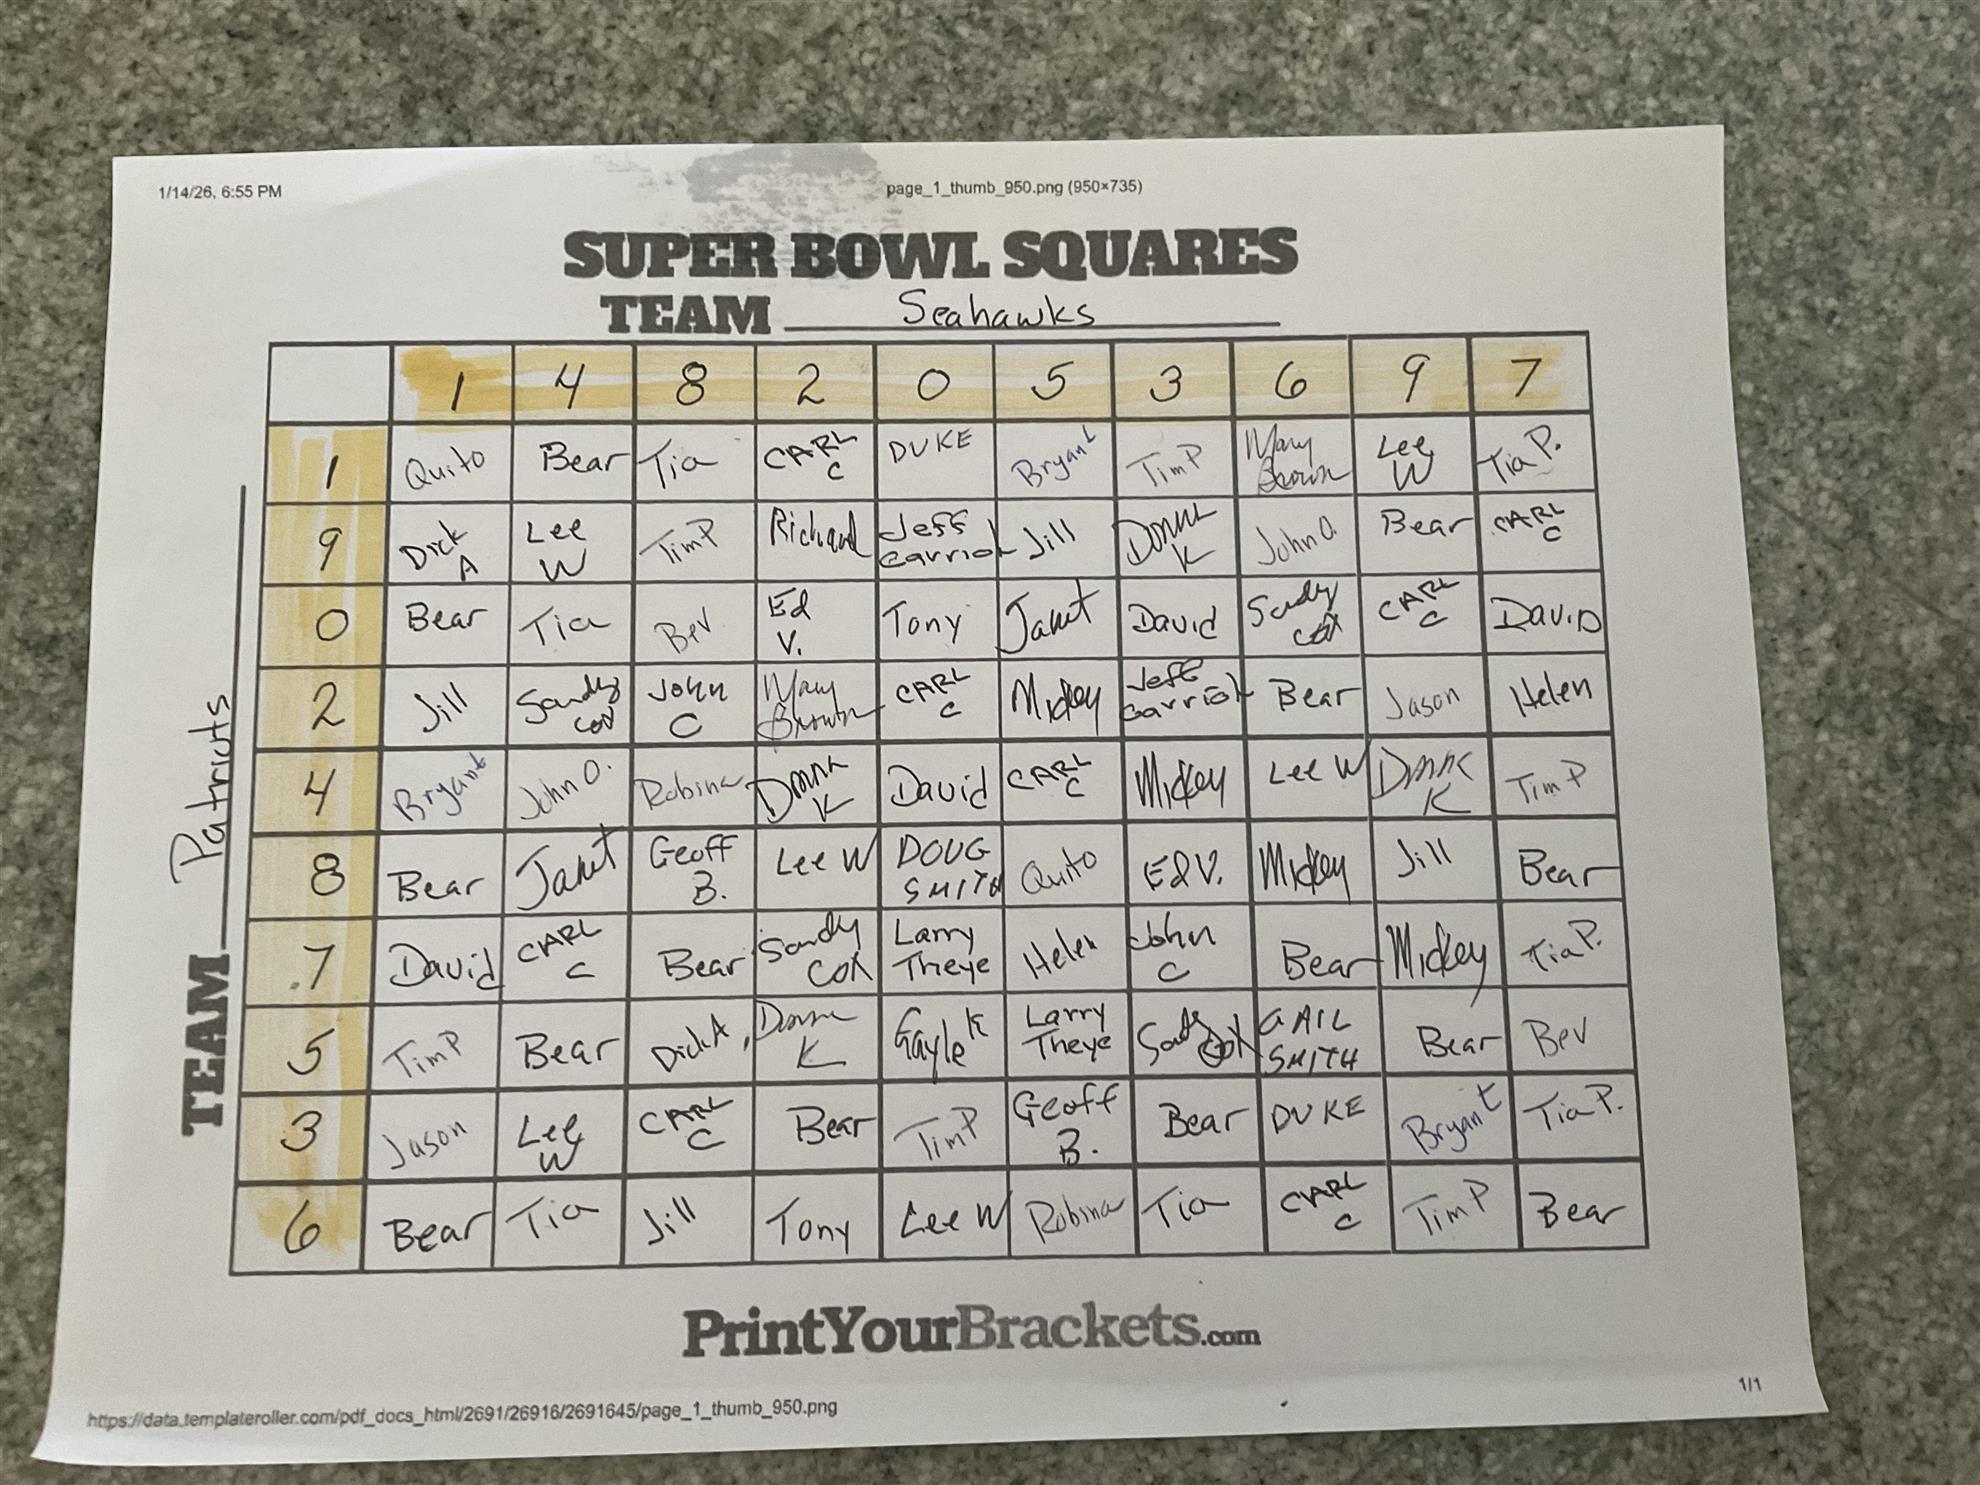 1/14/26, 6:55 PM page_1_thumb_950.png (950×735)
SUPER BOWL SQUARES
TEAM Seahawks
TEAM Patriots
1 4 8 2 0 5 3 6 9 7
1 Quito Bear Tia CARL C DUKE Bryant Tim P Mary Brown Lee W Tia P.
9 Dick A Lee W Tim P Richard Jeff Garriol Jill Donna K John O. Bear CARL C
0 Bear Tia Bev Ed V. Tony Janet David Sandy Cox CARL C DAVID
2 Jill Sandy Cox John C Mary Brown CARL C Mickey Jeff Garriol Bear Jason Helen
4 Bryant John O. Robina Donna K David CARL C Mickey Lee W Donna K Tim P
8 Bear Janet Geoff B. Lee W DOUG SMITH Quito Ed V. Mickey Jill Bear
7 David CARL C Bear Sandy Cox Larry Theye Helen John C Bear Mickey Tia P.
5 Tim P Bear Dick A Donna K Gayle K Larry Theye Sandy Cox GAIL SMITH Bear Bev
3 Jason Lee W CARL C Bear Tim P Geoff B. Bear DUKE Bryant Tia P.
6 Bear Tia Jill Tony Lee W Robina Tia CARL C Tim P Bear
PrintYourBrackets.com
1/1
https://data.templateroller.com/pdf_docs_html/2691/26916/2691645/page_1_thumb_950.png